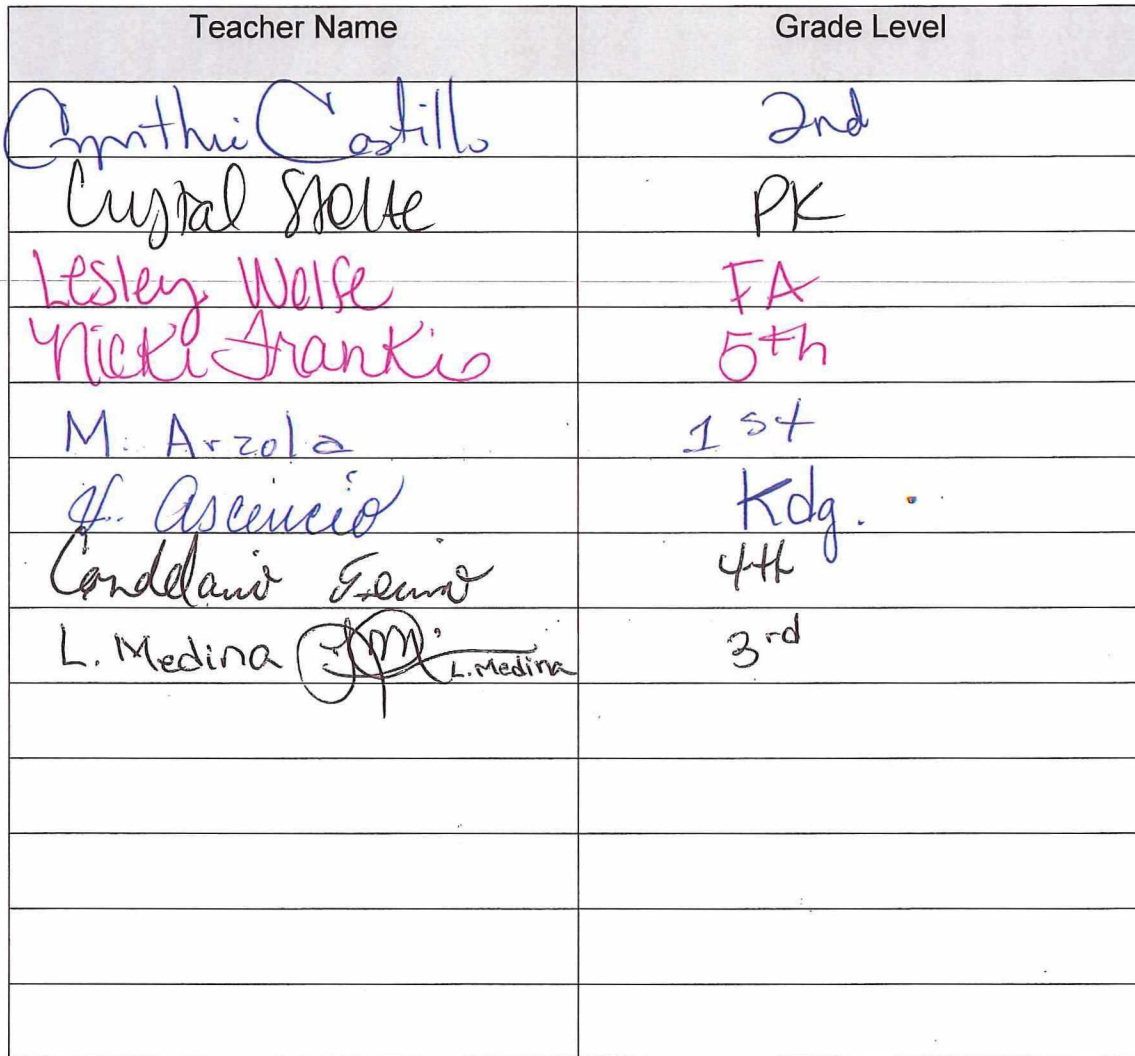 Teacher Name Grade Level
Cynthia Castillo 2nd
Crystal PK
Lesley Wolfe FA
Nicki Franki 5th
M. Arzola 1st
H. Ascencio Kdg.
4th
L. Medina L. Medina 3rd